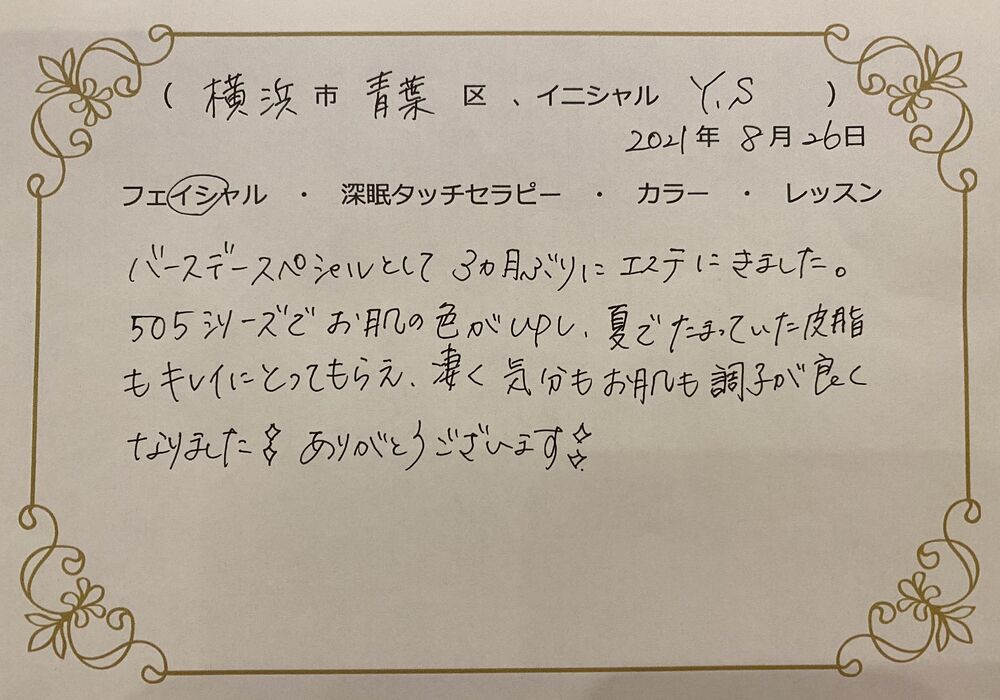 ( 横浜 市 青葉 区 、イニシャル Y.S )
2021年 8月26日
フェイシャル ・ 深眠タッチセラピー ・ カラー ・ レッスン
バースデースペシャルとして 3カ月ぶりに エステにきました。
505シリーズで お肌の色がupし、夏でたまっていた皮脂
もキレイにとってもらえ、凄く 気分もお肌も調子が良く
なりました!! ありがとうございます!!